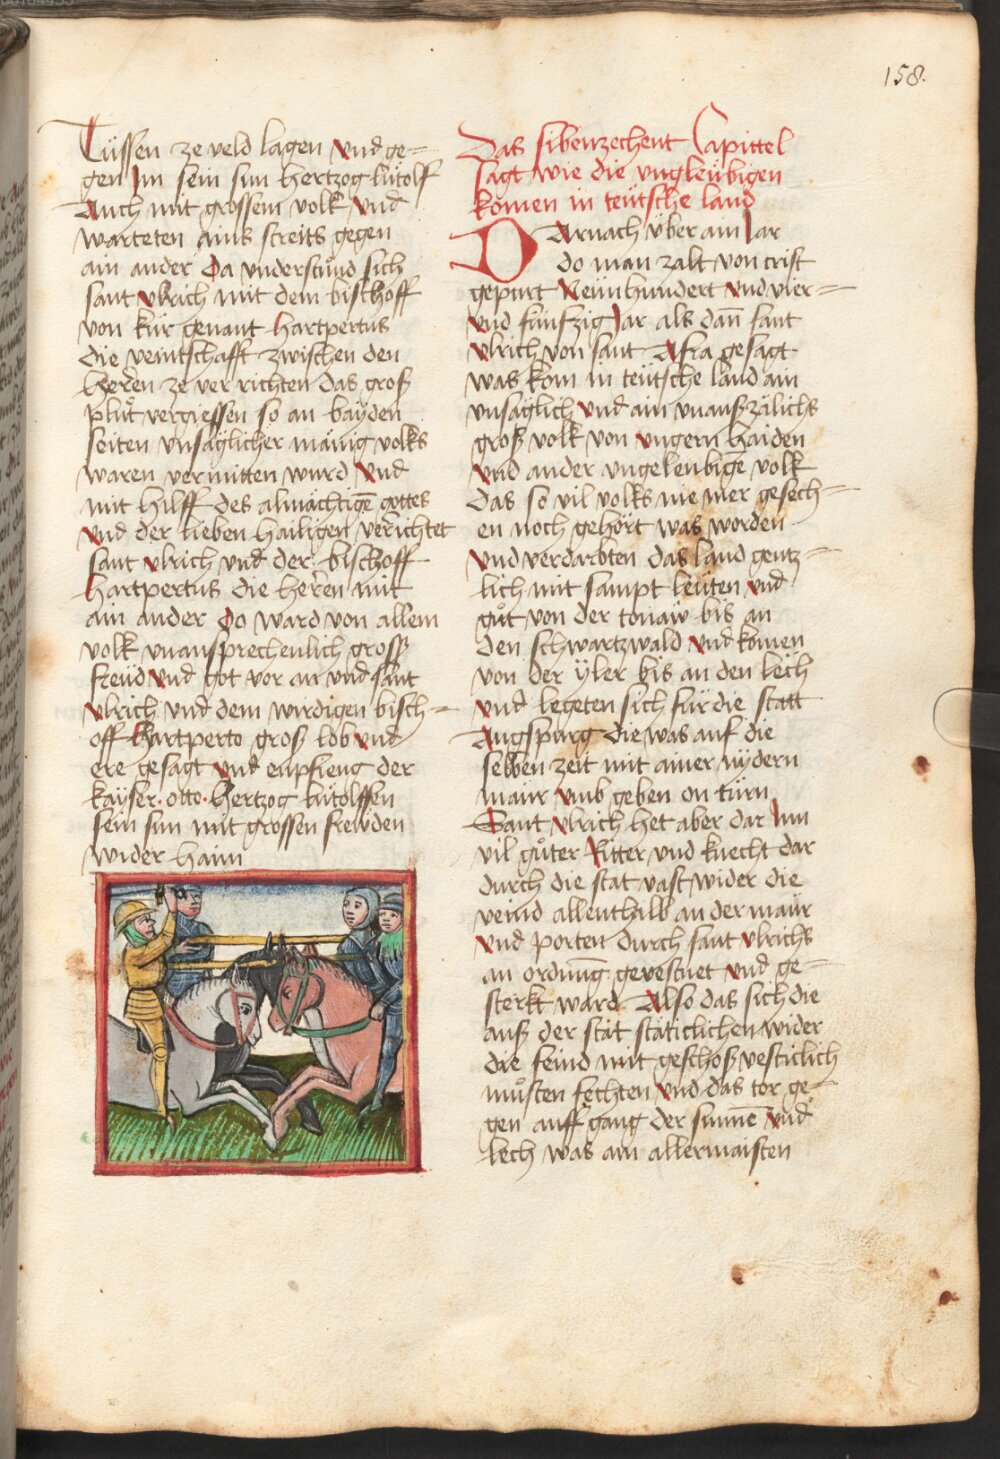 158.
Tüssen ze veld lagen vnd ge=
gen Im sein sun hertzog lütolff
Auch mit grossem volk vnd
warteten ains streits gegen
ain ander Da vnderstůnd sich
sant vlrich mit dem bischoff
von kür genant hartpertus
die veintschafft zwischen den
herren ze ver richten das groß
plůt vergiessen so an bayden
seiten vnsäglicher mänig volks
waren vermitten wurd vnd
mit hilff des almächtigē gottes
vnd der lieben hailigen verichtet
sant vlrich vnd der bischoff
hartpertus die heren mit
ain ander Do ward von allem
volk vnaussprechenlich gross
freüd vnd got vor an vnd sant
vlrich vnd dem wirdigen bisch=
off hartperto groß lob vnd
ere gesagt vnd enpfieng der
kayser · otto · hertzog lütolffen
sein sun mit grossen frewden
wider haim
Das sibenzechent Capittel
sagt wie die vngleübigen
komen in teütsche land
DArnach über ain Jar
do man zalt von crist
gepurt Neunhundert vnd vier=
vnd fünfzig Jar als dañ sant
vlrich von sant Afra gesagt
was kom in teütsche land ain
vnsäglich vnd ain vnaußzälichs
groß volk von vngern haiden
vnd ander vngeleubigē volk
das so vil volks nie mer gesech=
en noch gehört was worden
vnd verdarbten das land gentz=
lich mit sampt leüten vnd
gůt von der tonaw bis an
den schwartzwald vnd komen
von der yler bis an den lech
vnd legeten sich für die statt
Augspurg die was auf die
selben zeit mit ainer nydern
maur vmb geben on türn
Sant vlrich het aber dar Inn
vil gůter Ritter vnd knecht dar
durch die stat vast wider die
veind allenthalb an der maur
vnd porten durch sant vlrichs
an ordnūg gevestnet vnd ge=
sterkt ward Also das sich die
auß der stat stäticlichen wider
die feind mit geschoß vesticlich
můsten fechten vnd das tor ge=
gen auff gang der sunnē vnd
lech was am allermaisten